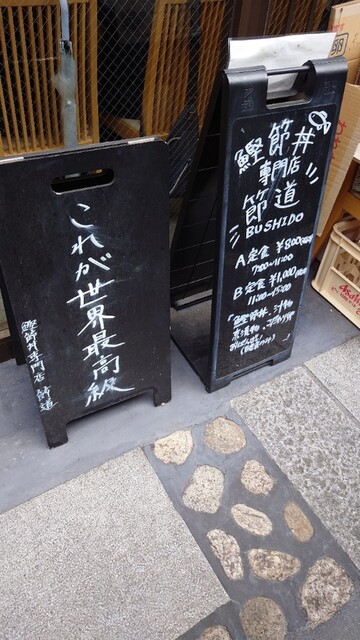 これが世界最高級
鰹節丼専門店 節道
鰹節丼
専門店
節道
BUSHIDO
A定食 ¥800
7:00-11:00
B定食 ¥1,000
11:00-15:00
「鰹節丼、汁物
Asahi